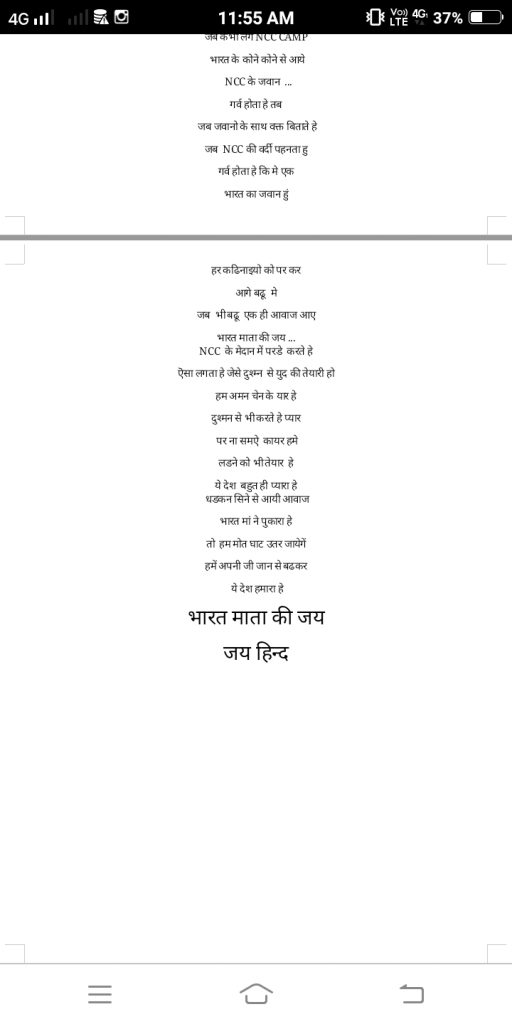 4G 11:55 AM Vo)) LTE 4G 37%
जब कभी लगे NCC CAMP
भारत के कोने कोने से आये
NCC के जवान ...
गर्व होता हे तब
जब जवानो के साथ वक्त बिताते हे
जब NCC की वर्दी पहनता हु
गर्व होता हे कि मे एक
भारत का जवान हुं
हर कढिनाइयो को पर कर
आगे बढू मे
जब भी बढू एक ही आवाज आए
भारत माता की जय ...
NCC के मेदान में परडे करते हे
ऎसा लगता हे जेसे दुश्मन से युद की तेयारी हो
हम अमन चेन के यार हे
दुश्मन से भी करते हे प्यार
पर ना समऐ कायर हमे
लडने को भी तेयार हे
ये देश बहुत ही प्यारा हे
धडकन सिने से आयी आवाज
भारत मां ने पुकारा हे
तो हम मोत घाट उतर जायेगें
हमें अपनी जी जान से बढकर
ये देश हमारा हे
भारत माता की जय
जय हिन्द